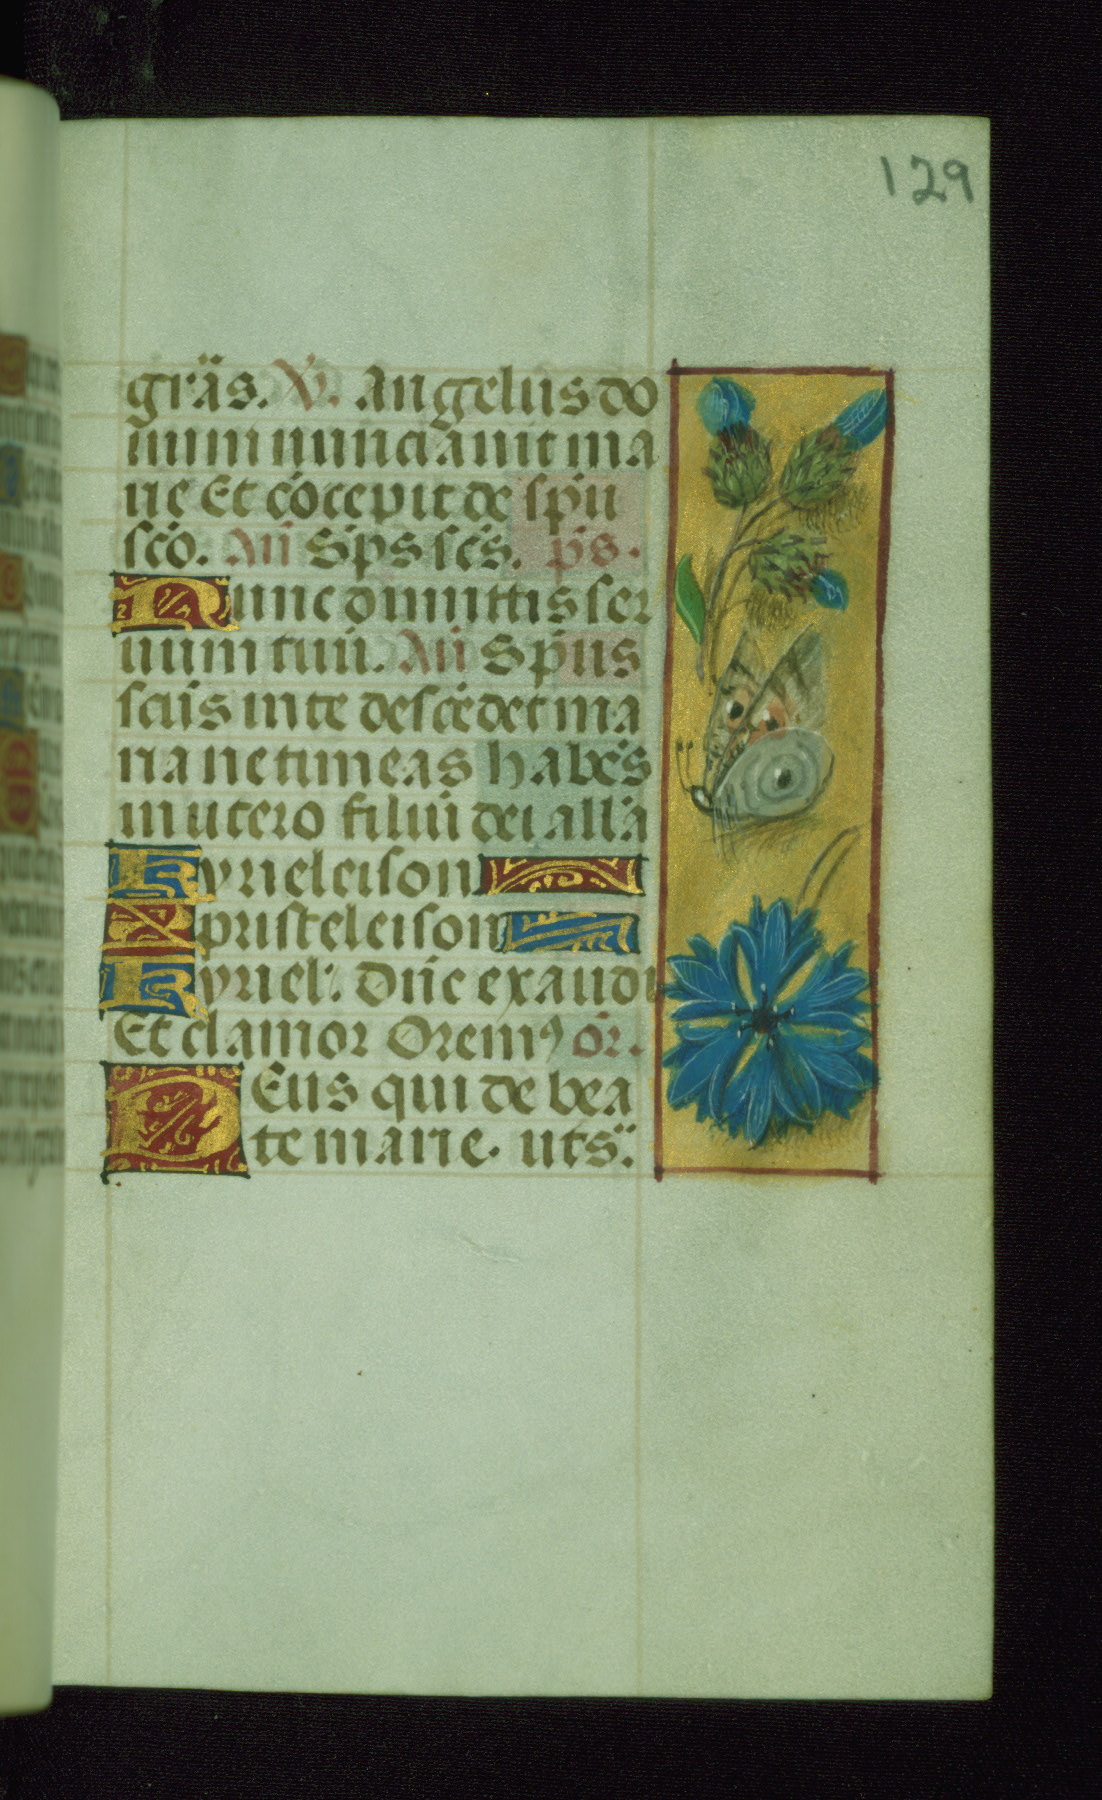 129
grãs. V. Angelus do
mini nunciauit ma
rie Et cõcepit de spũ
scõ. Añ Sp̃s scẽs. p̃s.
Nunc dimittis ser
uum tuũ. Añ Sp̃us
scũs in te descẽdet ma
ria ne timeas habẽs
in utero filiũ dei allã
Kyrieleison
Xpristeleison
Kyriel: Dñe exaudi
Et clamor Orem⁹ or̃.
Deus qui de bea
te marie. uts̃: